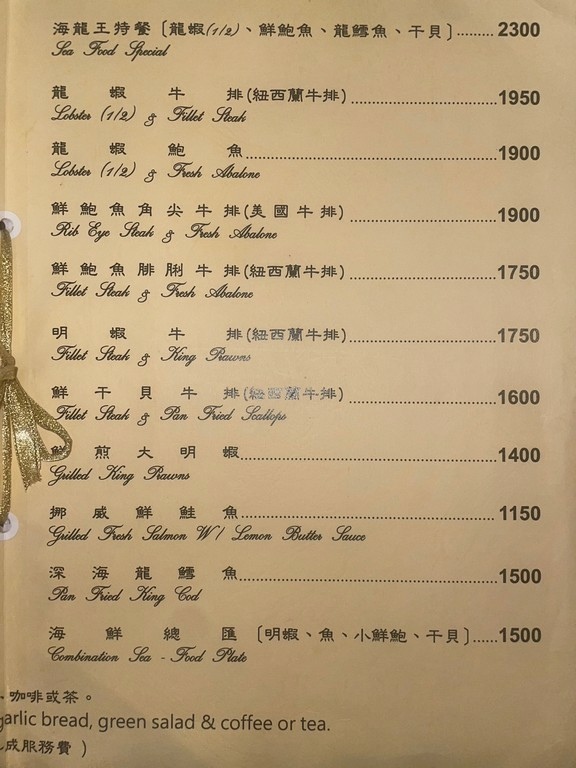 海龍王特餐〔龍蝦(1/2)、鮮鮑魚、龍鱈魚、干貝〕.........2300
Sea Food Special
龍蝦牛排(紐西蘭牛排)..............................1950
Lobster (1/2) & Fillet Steak
龍蝦鮑魚..................................................1900
Lobster (1/2) & Fresh Abalone
鮮鮑魚角尖牛排(美國牛排)..............................1900
Rib Eye Steak & Fresh Abalone
鮮鮑魚腓脷牛排(紐西蘭牛排)..............................1750
Fillet Steak & Fresh Abalone
明蝦牛排(紐西蘭牛排)..............................1750
Fillet Steak & King Rawns
鮮干貝牛排(紐西蘭牛排)..............................1600
Fillet Steak & Pan Fried Scallops
鮮煎大明蝦..................................................1400
Grilled King Rawns
挪威鮮鮭魚..................................................1150
Grilled Fresh Salmon W/ Lemon Butter Sauce
深海龍鱈魚..................................................1500
Pan Fried King Cod
海鮮總匯〔明蝦、魚、小鮮鮑、干貝〕......1500
Combination Sea - Food Plate
、咖啡或茶。
garlic bread, green salad & coffee or tea.
成服務費 )